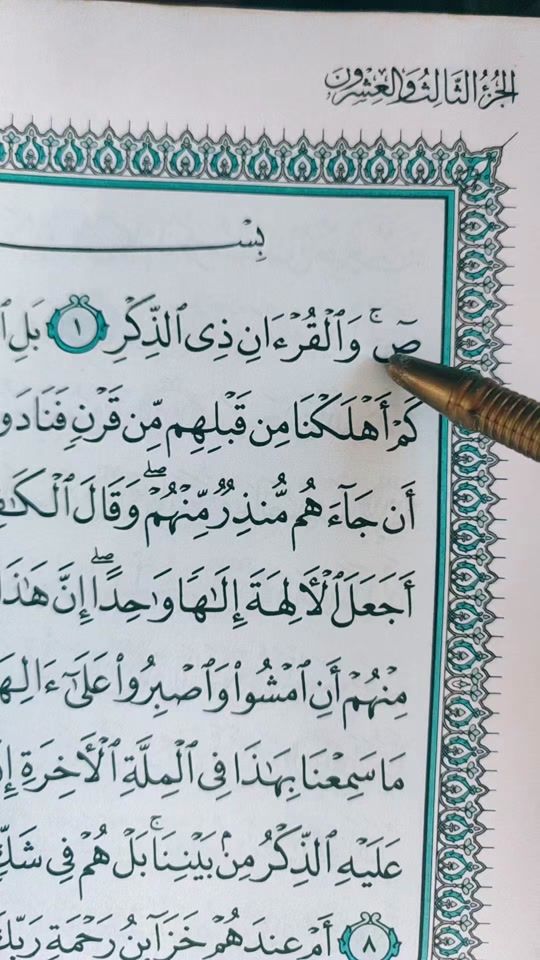 الجُزْءُ الثَّالِثُ وَالعِشْرُونَ
بِسْـ
صٓۚ وَٱلْقُرْءَانِ ذِى ٱلذِّكْرِ ١ بَلِ
كَمْ أَهْلَكْنَا مِن قَبْلِهِم مِّن قَرْنٍ فَنَادَوا
أَن جَآءَهُم مُّنذِرٌ مِّنْهُمْۖ وَقَالَ ٱلْكَٰفِ
أَجَعَلَ ٱلْأَلِهَةَ إِلَٰهًا وَٰحِدًاۖ إِنَّ هَٰذَا
مِنْهُمْ أَنِ ٱمْشُوا۟ وَٱصْبِرُوا۟ عَلَىٰٓ ءَالِهَ
مَا سَمِعْنَا بِهَٰذَا فِى ٱلْمِلَّةِ ٱلْأَخِرَةِ إِنْ
عَلَيْهِ ٱلذِّكْرُ مِنۢ بَيْنِنَاۚ بَلْ هُمْ فِى شَكٍّ
٨ أَمْ عِندَهُمْ خَزَآئِنُ رَحْمَةِ رَبِّكَ